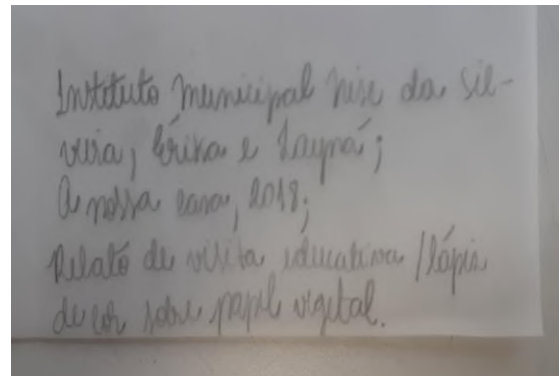 Instituto municipal nise da sil-
veira, Érika e Tayná;
A nossa casa, 2018;
Relato de visita educativa / lápis
de cor sobre papel vegetal.